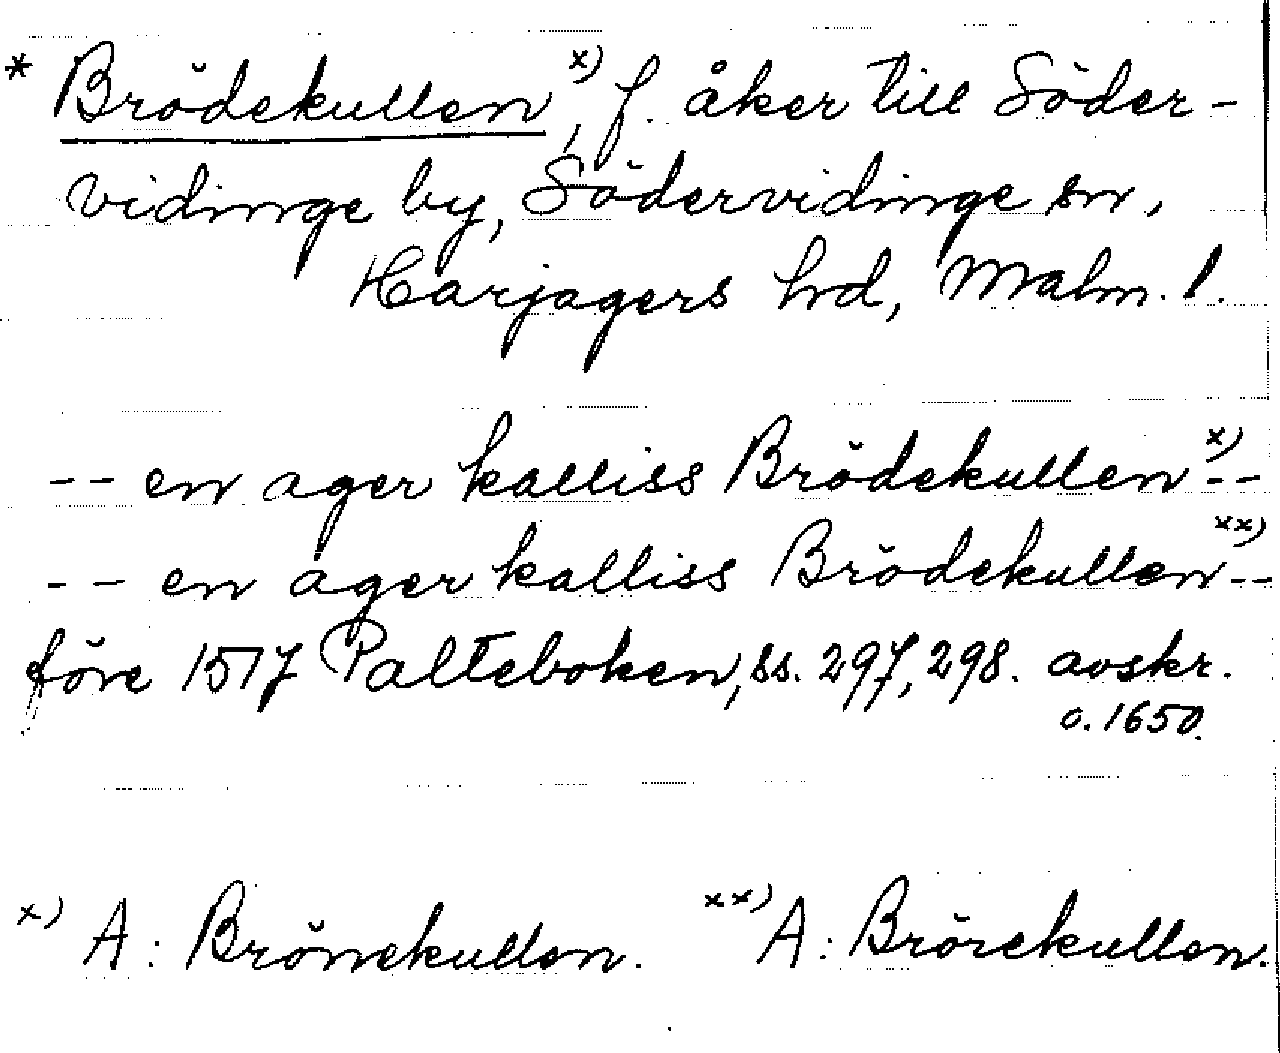 * Brödekullen x), f. åker till Söder-
vidinge by, Södervidinge sn,
Harjagers hd, Malm. l.
-- en ager kalliss Brödekullen x) --
-- en ager kalliss Brödekullen xx) --
före 1517 Palteboken, ss. 297, 298. avskr.
c. 1650.
x) A: Brönekullen. xx) A: Brörekullen.